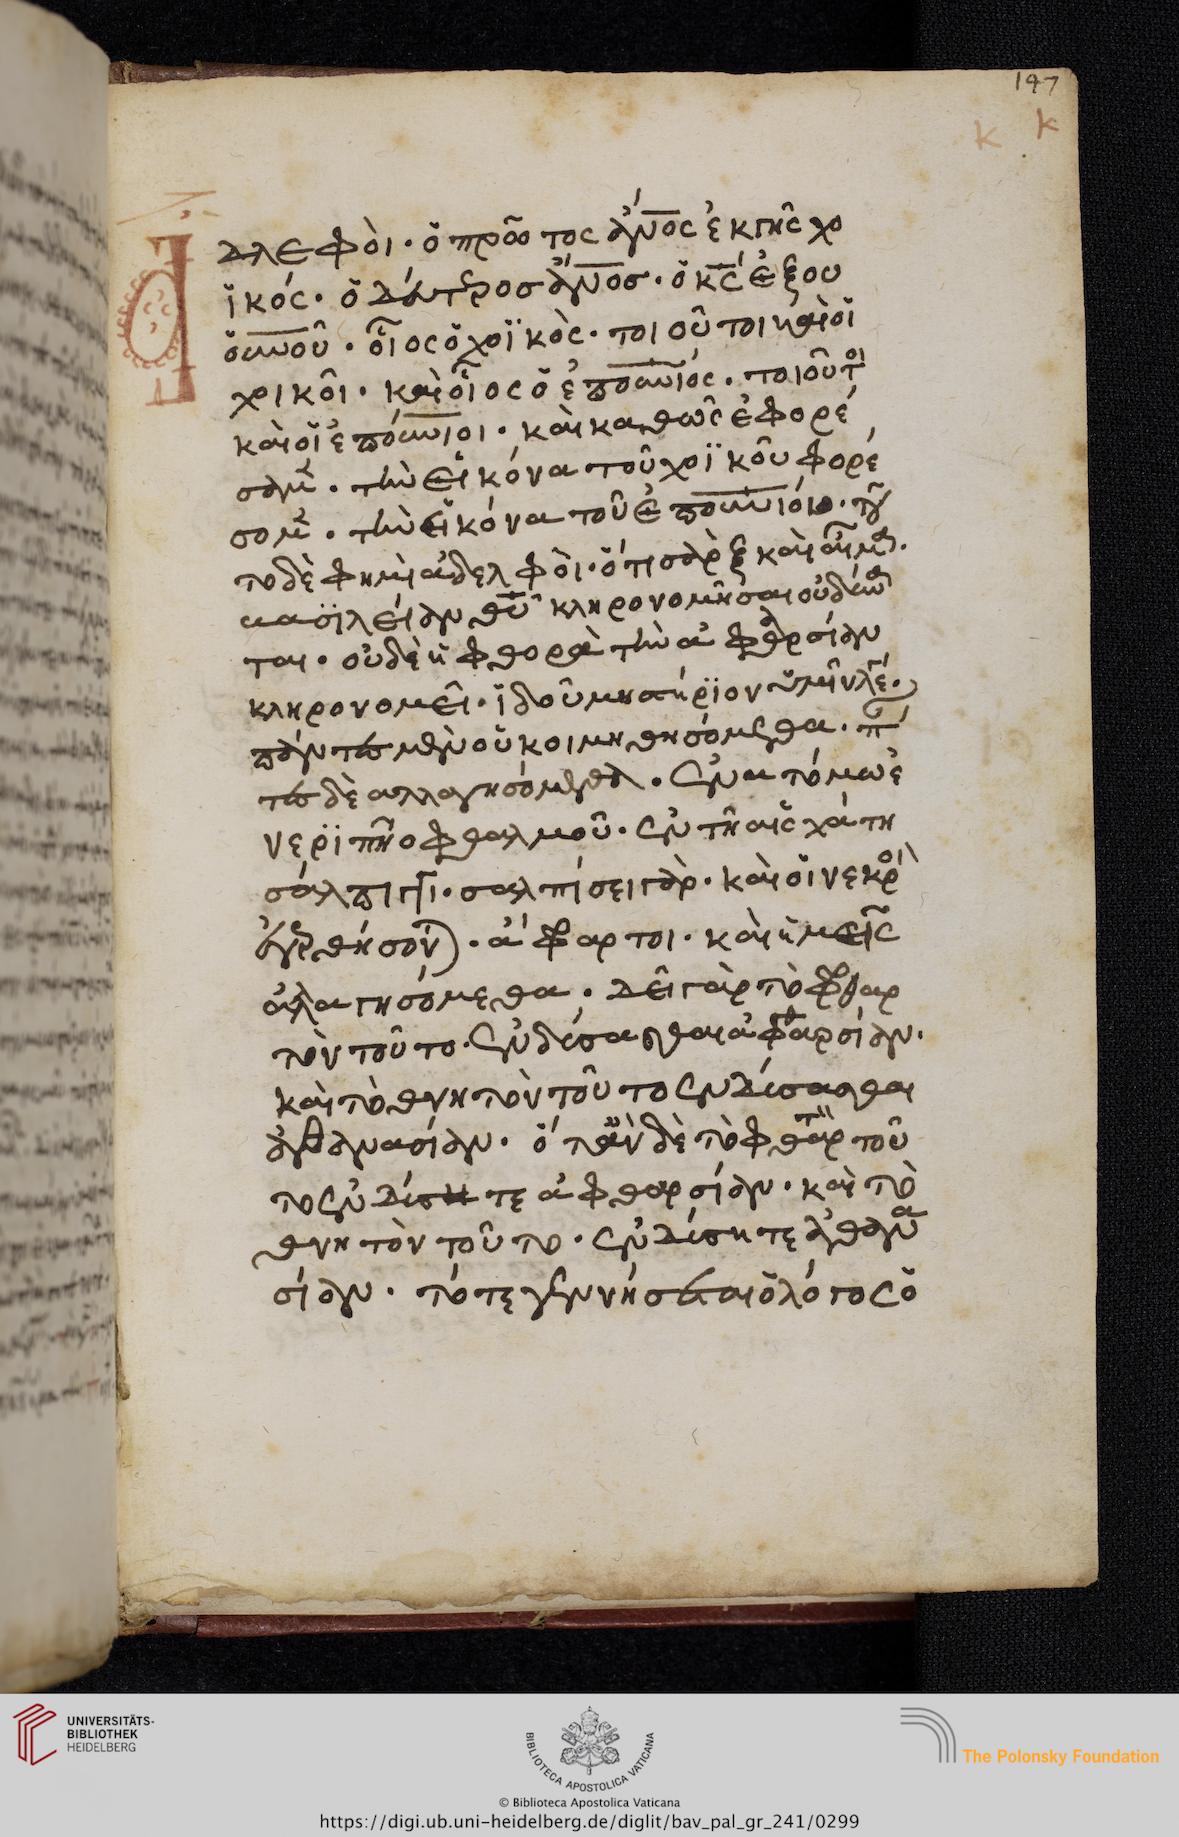 147
k k
δλεφὸι· ὁ πρῶτος ἄνος ἐκ γῆς χο
ϊκός· ὁ δεύτερος ἄνος· ὁ κς ἐξ ου
οὐνοῦ· οἷος ὁ χοϊκὸς· τοιοῦτοι καὶ οἱ
χοικοῖ· καὶ οἷος ὁ ἐπουνιός· τοιοῦτοι
καὶ οἱ ἐπουνιοι· καὶ καθὼς ἐφορέ
σαμεν· τὴν εἰκόνα τοῦ χοϊκοῦ φορέ
σομεν· τὴν εἰκόνα τοῦ ἐπουνιόυ· τοῦ
το δὲ φημὶ ἀδελφὸι· ὅτι σὰρξ καὶ αἷμα·
βασϊλείαν θυ κληρονομῆσαι οὐ δύναν
ται· οὐδὲ ἡ φθορὰ τὴν ἀφθαρσίαν
κληρονομεῖ· ἰδοῦ μυστήρϊον ὑμῖν λέγω·
πάντες μὲν οὐ κοιμηθησόμεθα· πάν
τες δὲ αλλαγησόμεθα· ἐν ατόμω ἐ
ν ερϊπῆ οφθαλμοῦ· ἐν τῆ αἰσχάτη
σάλπιγγι· σαλπίσει γὰρ· καὶ οἱ νεκροὶ
ἀναστήσονται· ἄφθαρτοι· καὶ ἡμεῖς
ἀλαγησόμεθα· δεῖ γὰρ τὸ φθαρ
τὸν τοῦτο· ἐνδύσασθαι ἀφθαρσίαν·
καὶ τὸ θνητὸν τοῦτο ἐνδύσασθαι
ἀθανασίαν· ὅταν δὲ τὸ φθαρτὸν τοῦ
το ἐνδύσητε ἀφθαρσίαν· καὶ τὸ
θνητὸν τοῦτο· ἐνδύσητε ἀθανα
σίαν· τότε γενήσεται ὁ λόγος ὁ
UNIVERSITÄTS-
BIBLIOTHEK
HEIDELBERG
BIBLIOTECA APOSTOLICA VATICANA
The Polonsky Foundation
© Biblioteca Apostolica Vaticana
https://digi.ub.uni-heidelberg.de/diglit/bav_pal_gr_241/0299